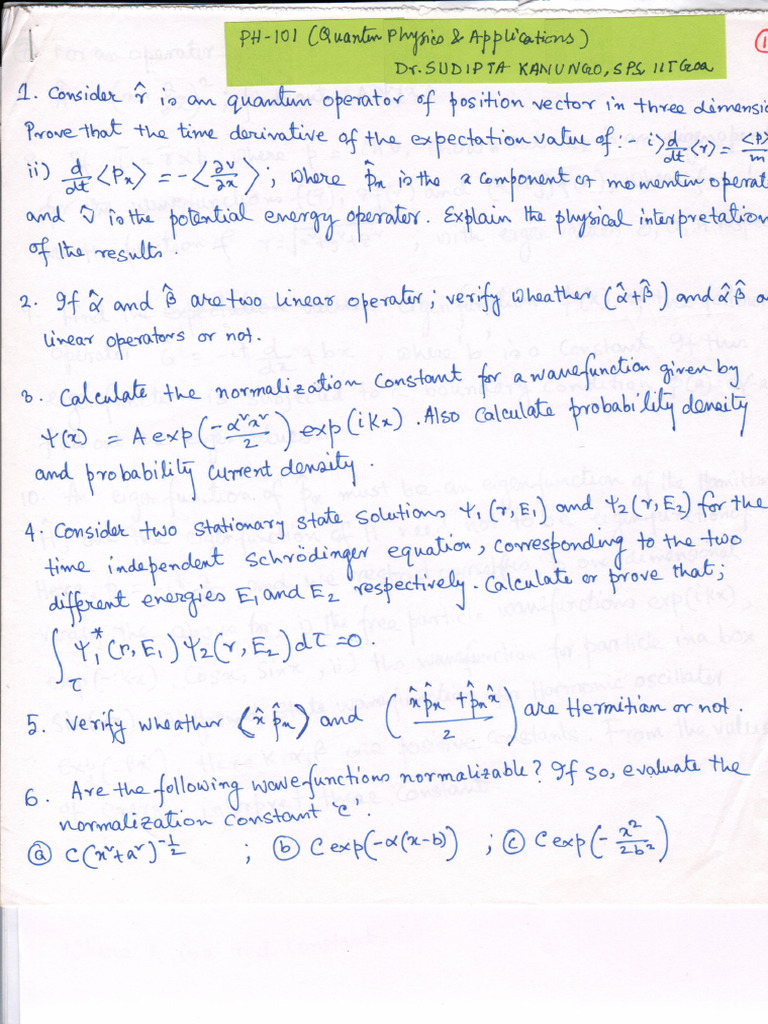 PH-101 (Quantum Physics & Applications)
Dr. SUDIPTA KANUNGO, SPS, IIT Goa
1
1. Consider r̂ is an quantum operator of position vector in three dimensio
Prove that the time derivative of the expectation value of :- i) d/dt <r> = <p>/m
ii) d/dt <Px> = - <∂V/∂x> ; where p̂x is the x component of momentum operat
and V̂ is the potential energy operator. Explain the physical interpretation
of the results.
2. If α̂ and β̂ are two linear operator; verify wheather (α̂+β̂) and α̂β̂ a
linear operators or not.
3. Calculate the normalization constant for a wavefunction given by
Ψ(x) = A exp(-α²x²/2) exp(ikx). Also calculate probability density
and probability current density.
4. Consider two stationary state solutions Ψ₁(r,E₁) and Ψ₂(r,E₂) for the
time independent Schrödinger equation, corresponding to the two
different energies E₁ and E₂ respectively. Calculate or prove that;
∫τ Ψ₁*(r,E₁) Ψ₂(r,E₂) dτ = 0.
5. Verify wheather (x̂p̂x) and ((x̂p̂x + p̂xx̂)/2) are Hermitian or not.
6. Are the following wavefunctions normalizable? If so, evaluate the
normalization constant 'c'.
(a) C(x²+a²)^-1/2 ; (b) C exp(-α(x-b)) ; (c) C exp(-x²/2b²)